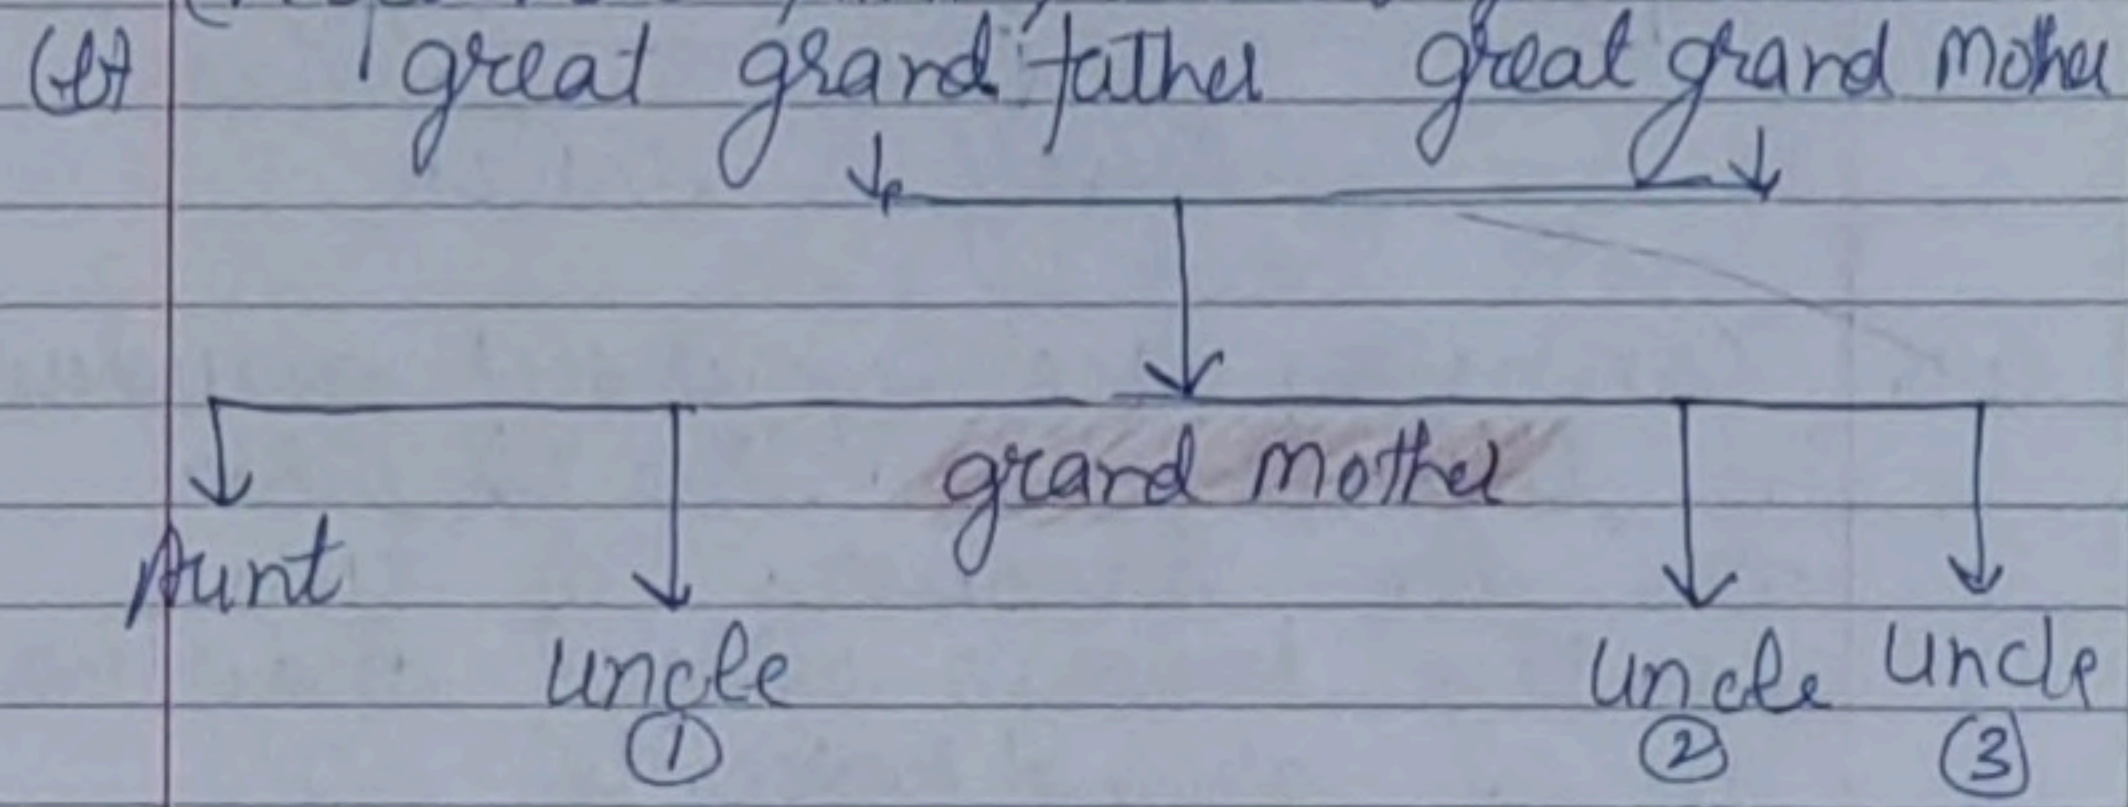 great grand father great grand Mother
grand Mother
Aunt
uncle uncle uncle
1 2 3